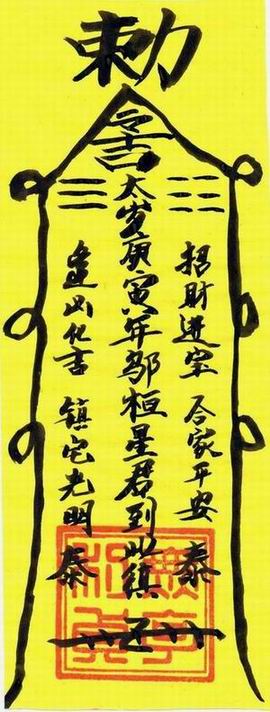 勅
令
太岁庚寅年邬桓星君到此镇
招財进宝 合家平安
逢凶化吉 镇宅光明
泰
泰